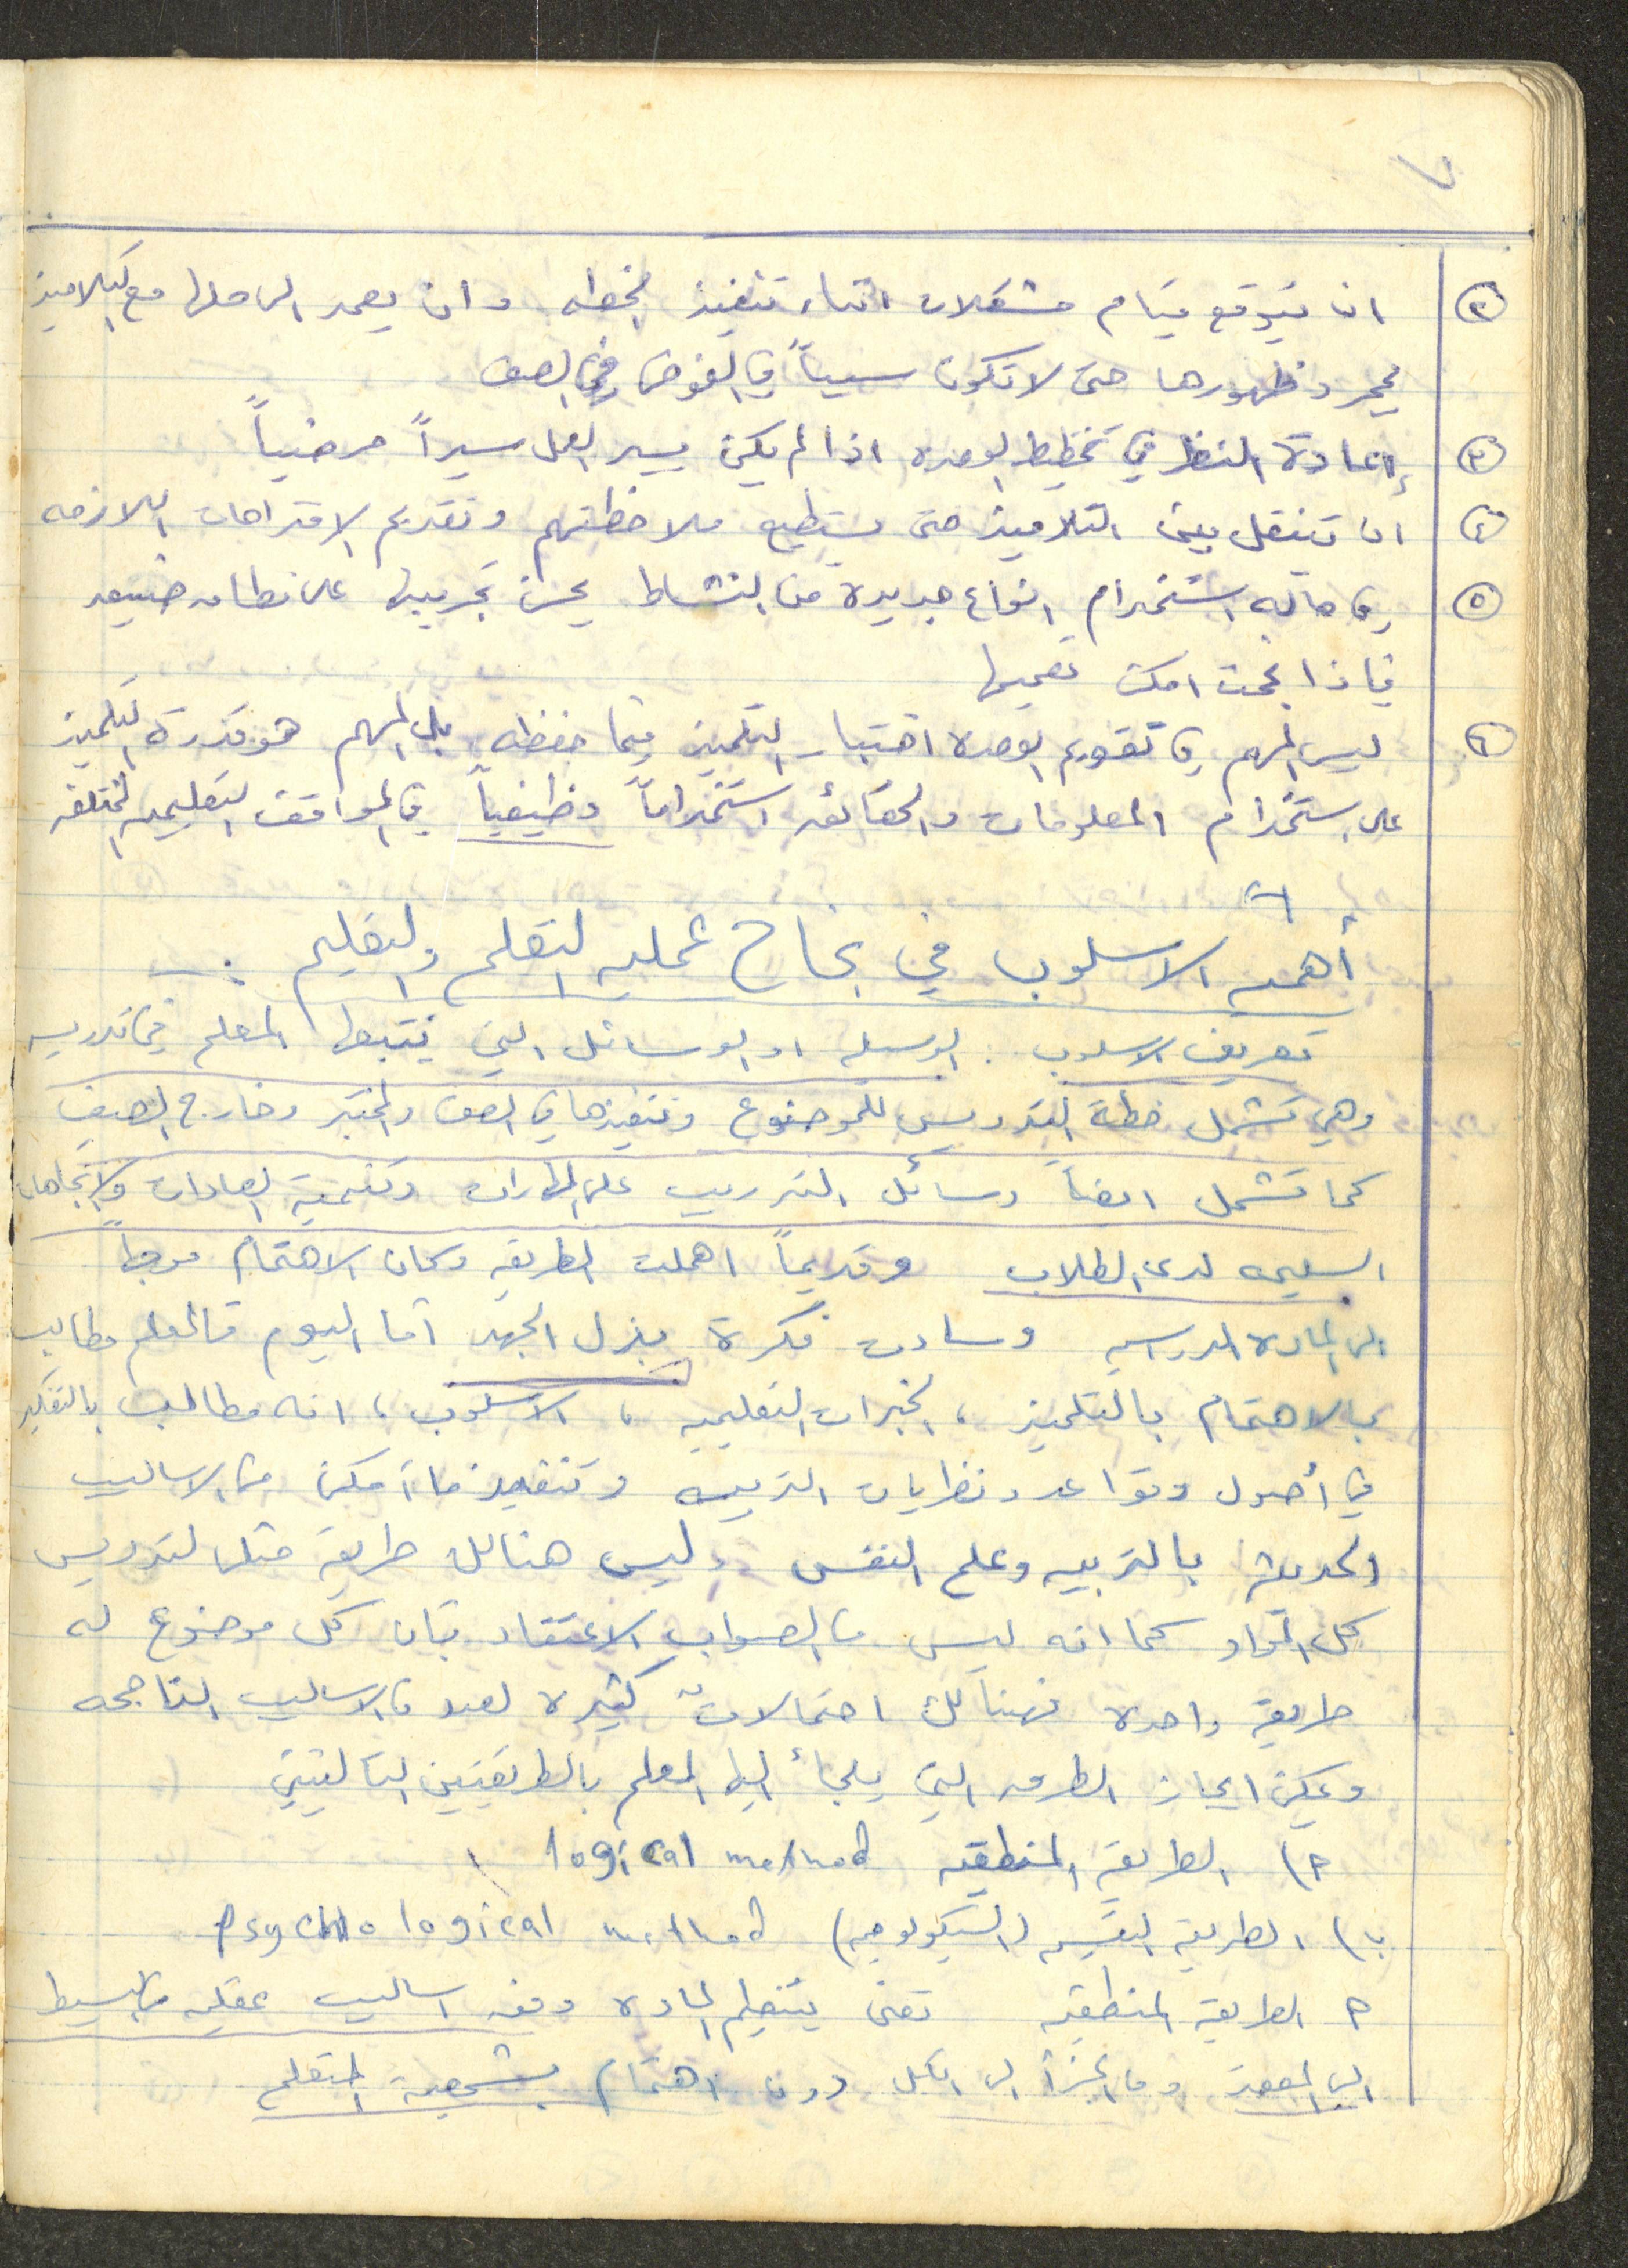 ٢ ان يتوقع قيام مشكلات اثناء تنفيذ الخطه وان يعمد الى حلها مع التلاميذ
بمجرد ظهورها حتى لا تكون سبباً في الفوضى في الصف
٣ إعادة النظر في تخطيط الوحده اذا لم يكن يسير العمل سيراً مرضياً
٤ ان تنتقل بين التلاميذ حتى يستطيع ملاحظتهم وتقديم الاقتراحات اللازمه
٥ في حاله استخدام انواع جديدة من النشاط يحسن تجريبها على نطاق ضيق
فاذا نجحت امكن تعميمها
٦ ليس المهم في تقويم الوحده اختبار التلميذ فيما حفظه بل المهم هو قدرة التلميذ
على استخدام المعلومات والحقائق استخداماً وظيفياً في المواقف التعليميه المختلفه
أهميه الاسلوب في نجاح عمليه التعلم والتعليم :
تعريف الاسلوب : الوسيله او الوسائل التي يتبعها المعلم في تدريسه
وهي تشمل خطة التدريس للموضوع وتنفيذها في الصف والمختبر وخارج الصف
كما تشمل ايضاً وسائل التدريب على المهارات وتنمية العادات والاتجاهات
السليمه لدى الطلاب وقديماً اهملت الطريقه وكان الاهتمام موجهاً
الى الماده الدراسيه وسادت فكرة بذل الجهد أما اليوم فالمعلم مطالب
بالاهتمام بالتلميذ ، الخبرات التعليميه ، الاسلوب ، انه مطالب بالتفكير
في أصول وقواعد ونظريات التربيه وتنفيذ ما أمكن من الاساليب
الحديثه بالتربيه وعلم النفس وليس هنالك طريقة مثلى لتدريس
كل المواد كما انه ليس من الصواب الاعتقاد بان كل موضوع له
طريقة واحده فهنالك احتمالات كثيره لعدد من الاساليب الناجحه
ويمكن ايجاز الطرق التي يلجأ اليها المعلم بالطريقتين التاليتين
أ) الطريقة المنطقيه logical method
ب) الطريقه النفسيه (السيكولوجيه) psychological method
أ الطريقة المنطقيه تعنى بتنظيم الماده وفق اساليب عقليه من البسيط
الى المعقد ومن الجزأ الى الكل دون اهتمام بشخصية المتعلم